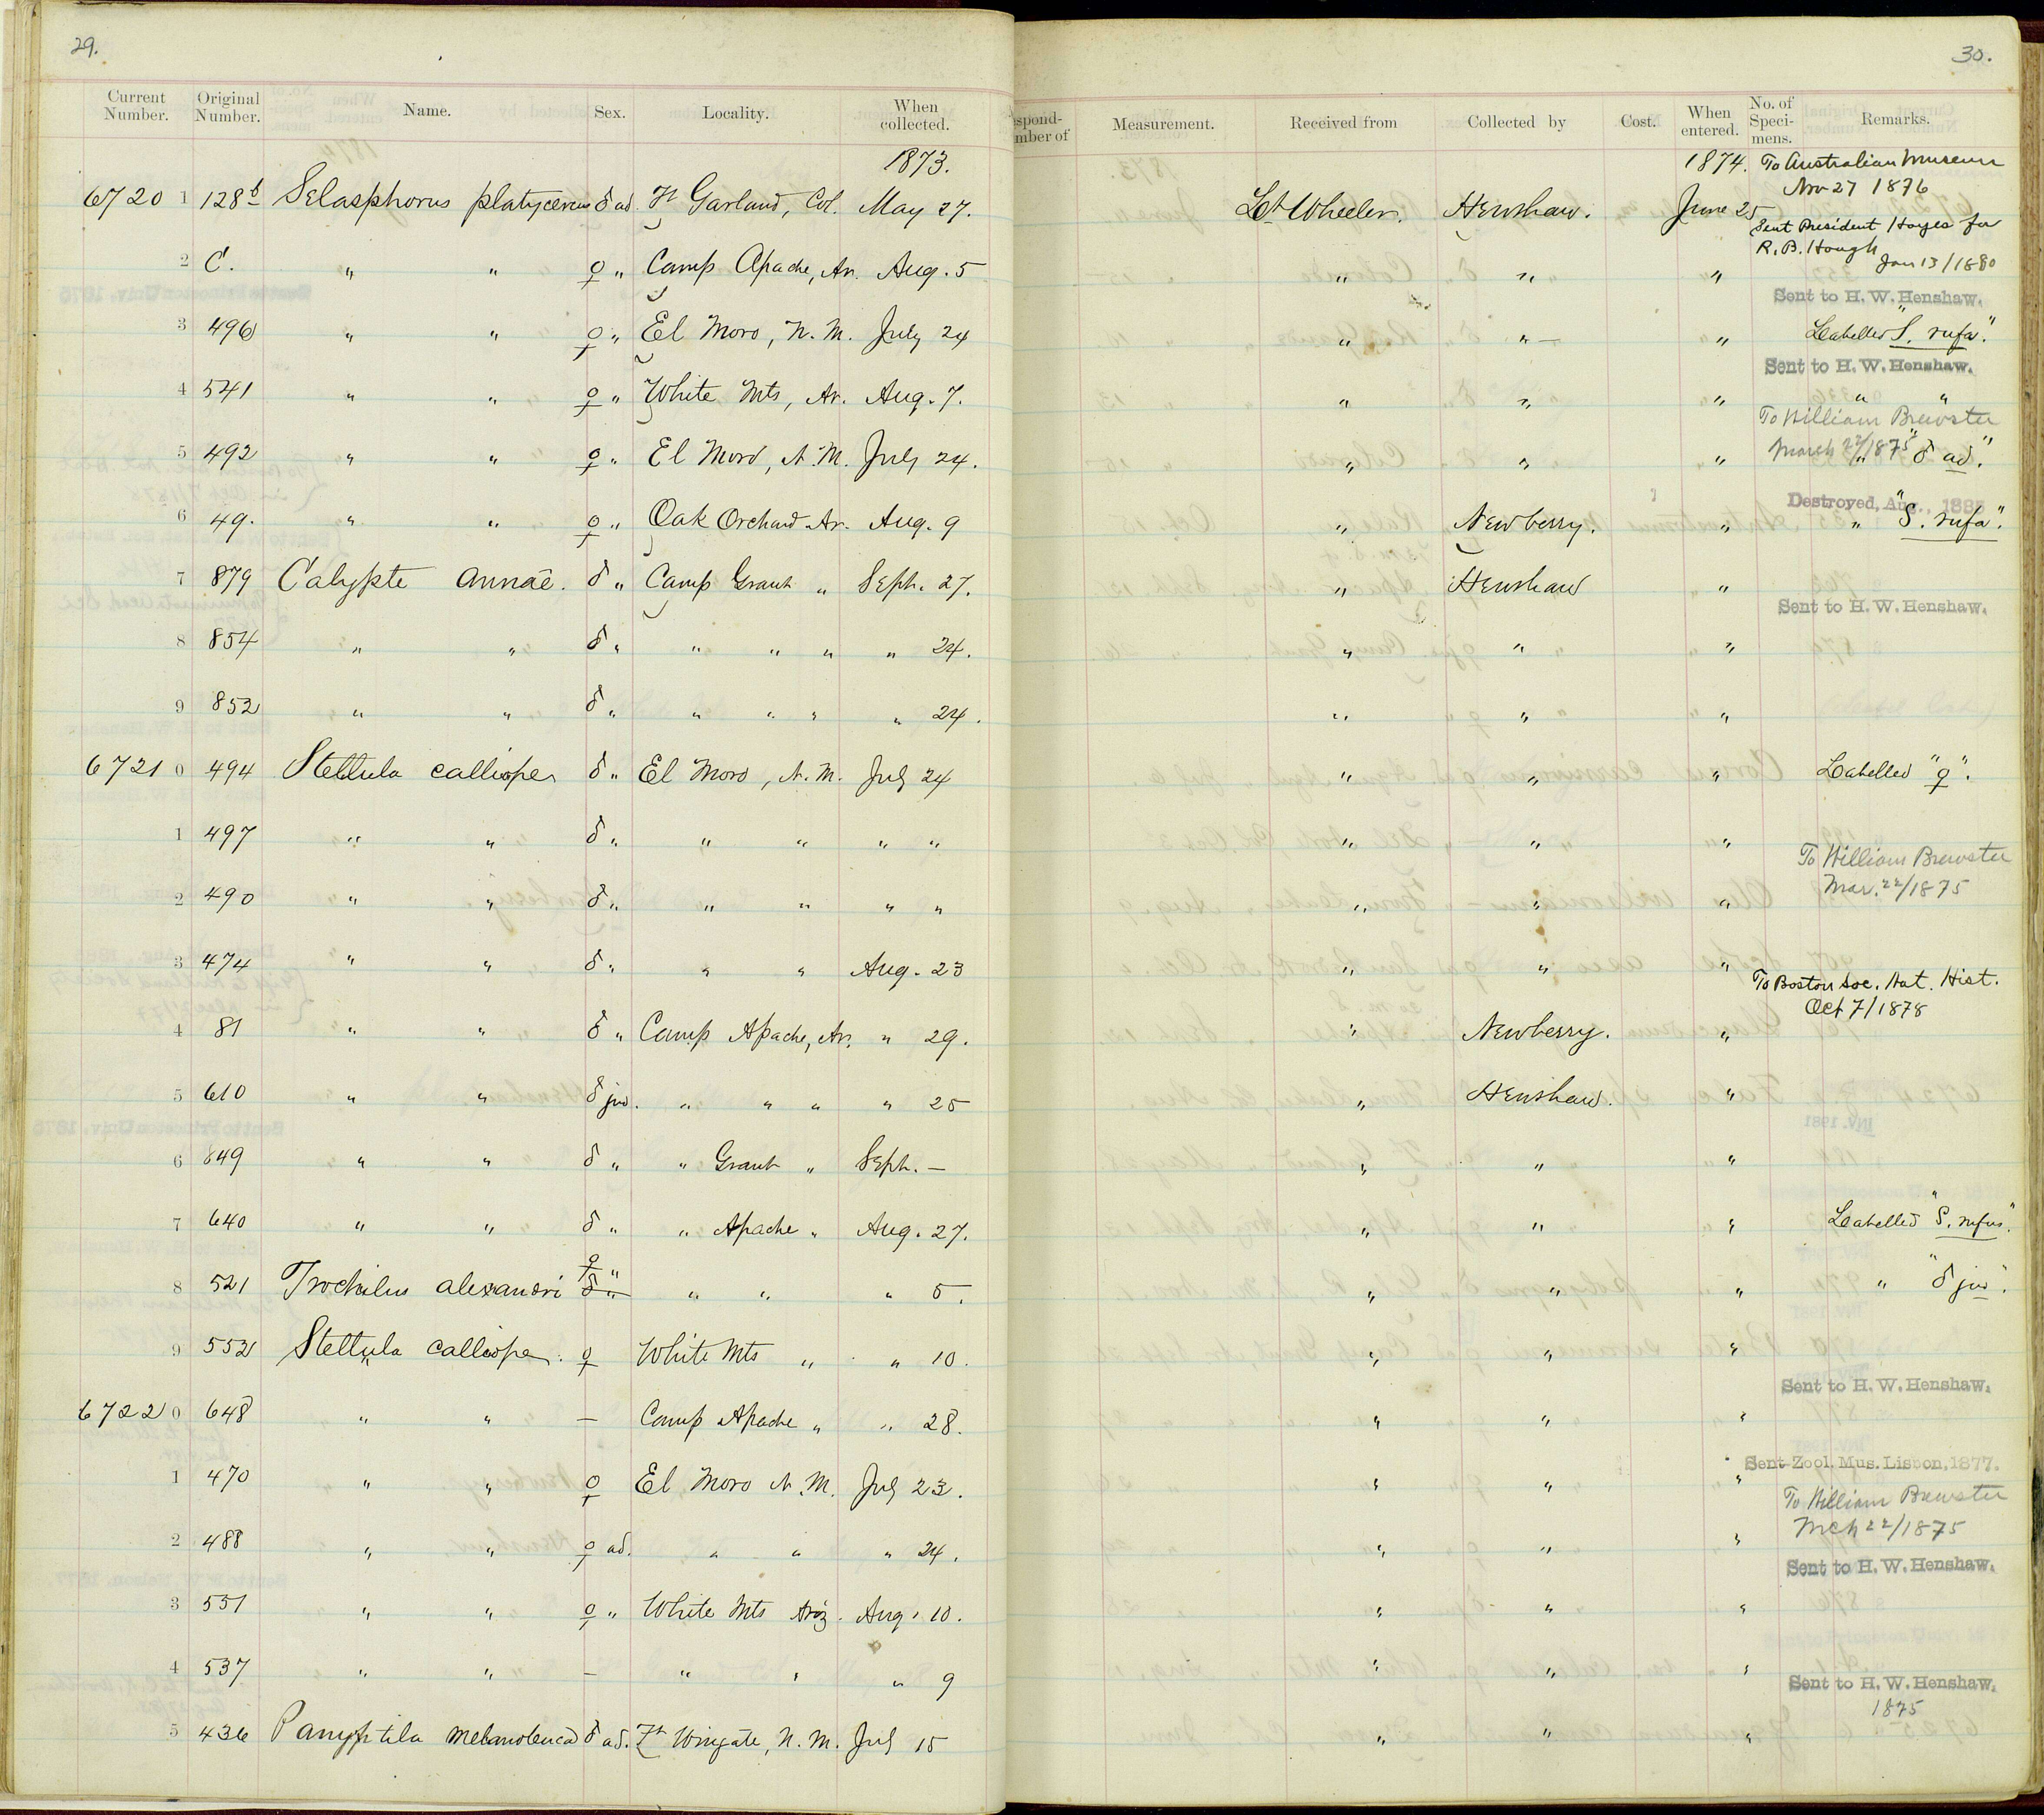 29.
Current Number. Original Number. Name. Sex. Locality. When collected.
1873.
6720 1 128b Selasphorus platycercus ♂ ad. Ft Garland, Col. May 27.
2 C. " " ♀ " Camp Apache, Ar. Aug. 5
3 496 " " ♀ " El Moro, N. M. July 24
4 541 " " ♀ " White Mts, Ar. Aug. 7.
5 492 " " ♀ " El Moro, N. M. July 24.
6 49. " " ♀ " Oak Orchard Ar. Aug. 9
7 879 Calypte annae. ♂ " Camp Grant " Sept. 27.
8 854 " " ♂ " " " " " 24.
9 852 " " ♂ " " " " " 24.
6721 0 494 Stellula calliope ♂ " El Moro, N. M. July 24
1 497 " " ♂ " " " " "
2 490 " " ♂ " " " " "
3 474 " " ♂ " " " Aug. 23
4 81 " " ♂ " Camp Apache, Ar. " 29.
5 610 " " ♂ juv. " " " " 25
6 849 " " ♂ " " Grant " Sept. —
7 640 " " ♂ " " Apache " Aug. 27.
8 521 Trochilus alexandri ♀ " ♂ " " " " 5.
9 552 Stellula calliope. ♀ White Mts " " 10.
6722 0 648 " " — Camp Apache " " 28.
1 470 " " ♀ El Moro N. M. July 23.
2 488 " " ♀ ad. " " " 24.
3 551 " " ♀ " White Mts Ariz. Aug. 10.
4 537 " " — " " " 9
5 436 Panyptila melanoleuca ♂ ad. Ft Wingate, N. M. July 15
30.
Measurement. Received from Collected by Cost. When entered. No. of Speci-mens. Remarks.
1874. To Australian Museum
Nov 27 1876
Lt Wheeler. Henshaw. June 25
Sent President Hayes for
R. B. Hough
Jan 13/1880
" " "
Sent to H. W. Henshaw.
" " — " Labelled "S. rufa."
Sent to H. W. Henshaw.
" " " " "
To William Brewster
March 22/1875
" " " " "♂ ad."
Destroyed, Aug., 188
" Newberry. " " "S. rufa".
" Henshaw "
Sent to H. W. Henshaw.
" " "
" " "
" " " Labelled "♀".
" " "
To William Brewster
Mar. 22/1875
" " "
" " "
To Boston Soc. Nat. Hist.
Oct 7/1878
" Newberry. "
" Henshaw. "
" " "
" " " Labelled "S. rufus."
" " " " "♂ juv".
" " "
Sent to H. W. Henshaw.
" " "
Sent Zool. Mus. Lisbon, 1877.
" " "
To William Brewster
Mch 22/1875
" " "
Sent to H. W. Henshaw.
" " "
" " "
Sent to H. W. Henshaw.
1875
" " "